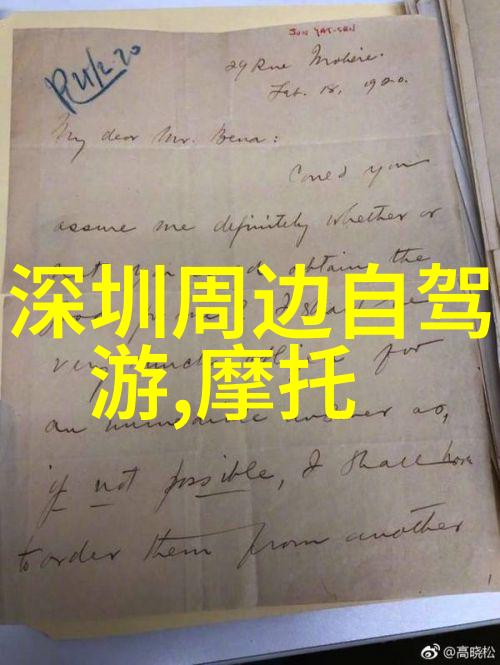 SUN YAT-SEN
R 21/2.20
29 Rue Molière.
Feb. 18, 1920.
My dear Mr. Bena:
Could you
assure me definitely whether or
not you could obtain the
深圳周边自驾
very much oblige for
游,摩托
an immediate answer as,
if not possible, I shall have
to order them from another
@高晓松